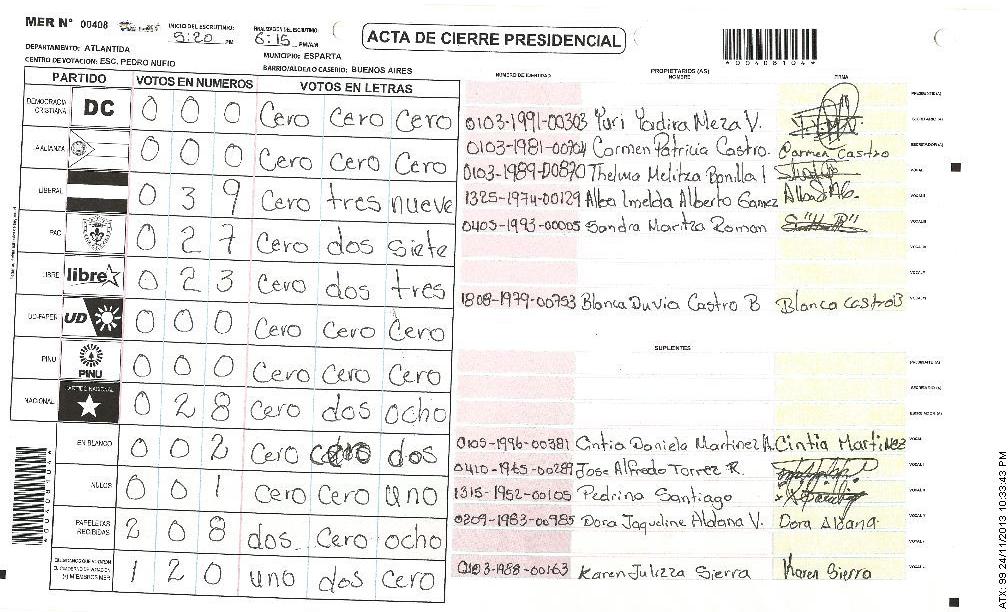 MER N° 00408
INICIO DEL ESCRUTINIO: 5:20 PM
FINALIZACION DEL ESCRUTINIO: 6:15 PM/AM
ACTA DE CIERRE PRESIDENCIAL
*00408104*
DEPARTAMENTO: ATLANTIDA
MUNICIPIO: ESPARTA
CENTRO DE VOTACION: ESC. PEDRO NUFIO
BARRIO/ALDEA O CASERIO: BUENOS AIRES
PARTIDO VOTOS EN NUMEROS VOTOS EN LETRAS
DEMOCRACIA CRISTIANA DC 0 0 0 Cero Cero Cero
ALIANZA 0 0 0 Cero Cero Cero
LIBERAL 0 3 9 Cero tres nueve
PAC 0 2 7 Cero dos siete
LIBRE libre 0 2 3 Cero dos tres
UD-FAPER UD 0 0 0 Cero Cero Cero
PINU PINU 0 0 0 Cero Cero Cero
NACIONAL 0 2 8 Cero dos ocho
EN BLANCO 0 0 2 Cero cero dos
NULOS 0 0 1 Cero Cero uno
PAPELETAS RECIBIDAS 2 0 8 dos Cero ocho
1 2 0 uno dos Cero
NUMERO DE IDENTIDAD PROPIETARIOS (AS) NOMBRE FIRMA
PRESIDENTE(A)
0103-1991-00303 Yuri Yadira Meza V. SECRETARIO (A)
0103-1981-00704 Carmen Patricia Castro. Carmen Castro ESCRUTADOR(A)
0103-1989-00890 Thelma Melitza Bonilla VOCAL I
1325-1974-00129 Alba Imelda Alberto Gamez VOCAL II
0405-1993-00005 Sandra Maritza Roman VOCAL III
1808-1979-00753 Blanca Duvia Castro B Blanca Castro B
SUPLENTES
0105-1996-00381 Cintia Daniela Martinez A. Cintia Martinez
0410-1965-00289 Jose Alfredo Torrez R.
1315-1952-00105 Pedrina Santiago
0209-1983-00985 Dora Jaqueline Aldana V. Dora Aldana
0103-1988-00163 Karen Julizza Sierra Karen Sierra
ATX: 99 24/11/2013 10:33:43 PM